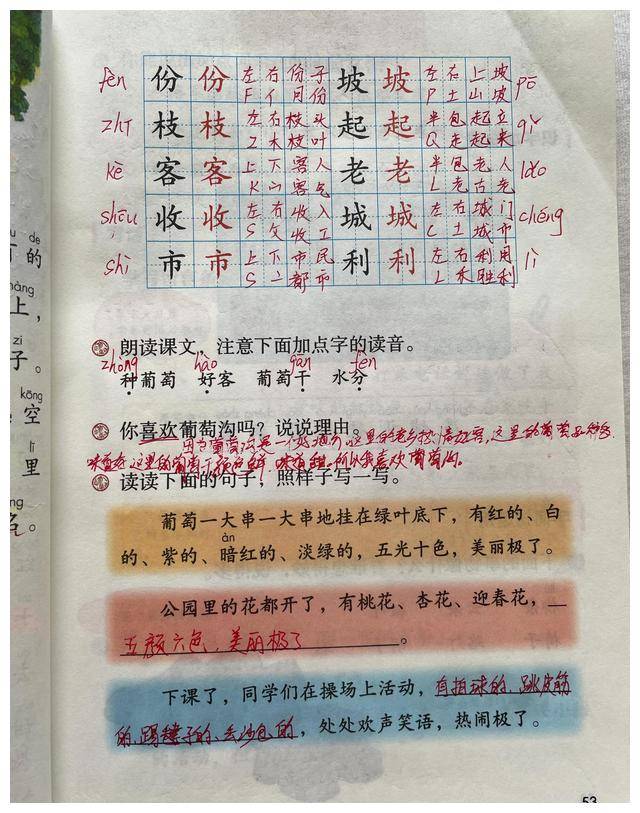 fèn 份 份 左右 份子 坡 坡 左右 上坡 pō
F 亻 月份 P 土 山坡
zhī 枝 枝 左右 枝头 起 起 半包 起立 qǐ
Z 木 枝叶 Q 走 起来
kè 客 客 上下 客人 老 老 半包 老人 lǎo
K 宀 客气 L 老 古老
shōu 收 收 左右 收入 城 城 左右 城门 chéng
S 攵 收工 C 土 城市
shì 市 市 上下 市民 利 利 左右 利用 lì
S 亠 都市 L 禾 胜利
朗读课文,注意下面加点字的读音。
zhòng hào gān fèn
种葡萄 好客 葡萄干 水分
你喜欢葡萄沟吗?说说理由。
因为葡萄沟是一个好地方,这里的老乡热情好客,这里的葡萄品种多,
味道好,这里的葡萄干颜色鲜,味道甜,所以我喜欢葡萄沟。
读读下面的句子,照样子写一写。
葡萄一大串一大串地挂在绿叶底下,有红的、白
àn
的、紫的、暗红的、淡绿的,五光十色,美丽极了。
公园里的花都开了,有桃花、杏花、迎春花,
五颜六色,美丽极了。
下课了,同学们在操场上活动,有拍球的、跳皮筋
的、踢毽子的、丢沙包的,处处欢声笑语,热闹极了。
de
的
上,
zi
子。
kōng
空
lǐ
里
53